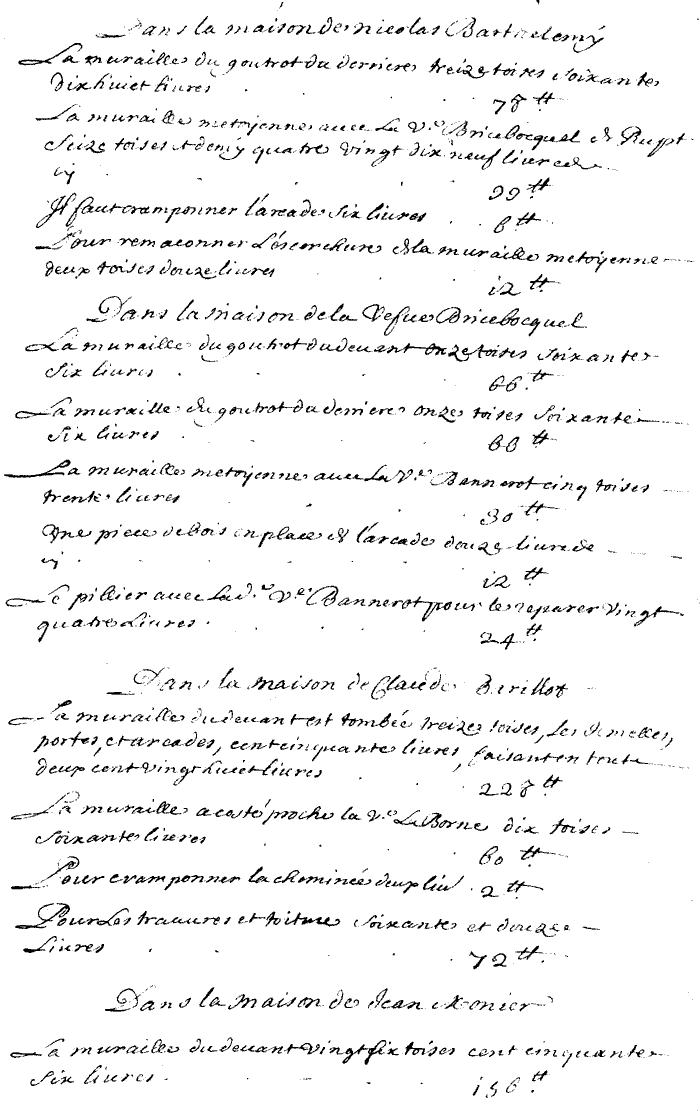 Dans la maison de nicolas Barthelemÿ
La muraille du goutrot du derriere treize toises soixante
dix huiet liures
78 tt
La muraille metoÿenne auec La Ve Bricebocquel & Rupt
Seize toises et demÿ quatre vingt dix neuf liures
cÿ
99 tt
Jl faut cramponner l'arcade six liures 6 tt
Pour remaconner L'escorchure & la muraille metoÿenne
deux toises douze liures
12 tt
Dans la maison de la Vefue Bricebocquel
La muraille du goutrot du deuant onze toises soixante
Six liures
66 tt
La muraille du goutrot du derriere onze toises soixante
six liures
66 tt
La muraille metoÿenne auec La Ve Bannerot cinq toises
trente liures
30 tt
Vne piece de bois en place & l'arcade douze liures
cÿ
12 tt
Le pillier auec La d. Ve Bannerot pour le reparer Vingt
quatre Liures
24 tt
Dans la maison de Claude Birillot
La muraille du deuant est tombée treize toises, Les Jumelles,
portes, et arcades, cent cinquante liures, faisant en toute
deux cent vingt huict liures
228 tt
La muraille a costé proche la Ve Le Borne dix toises
soixante liures
60 tt
Pour cramponner la cheminée deux liu 2 tt
Pour Les trauures et toiture soixante et douze
Liures
72 tt
Dans la maison de Jean Monier
La muraille du deuant vingt six toises cent cinquante
six liures
156 tt